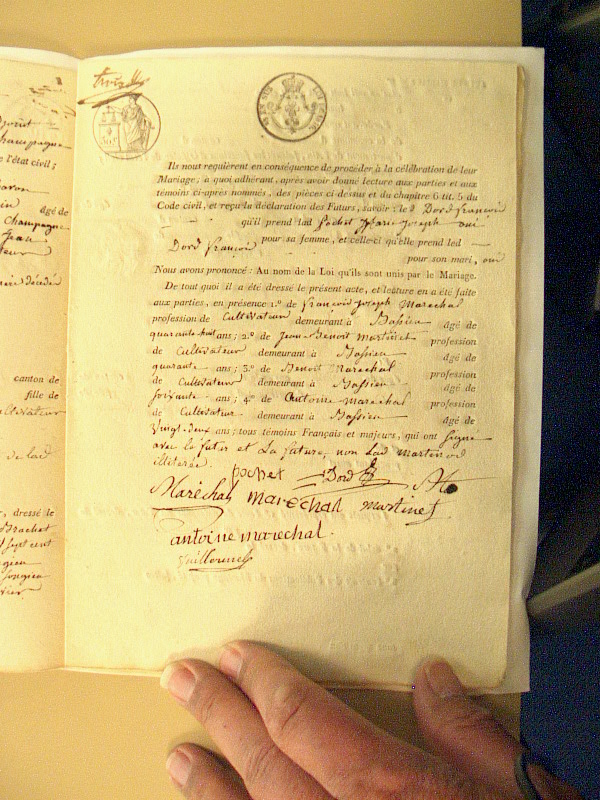 Champagne
de l'état civil;
âgé de
champagne
Jean
canton de
fille de
cultivateur
de lad
, dressé le
Brachet
sept cent
Songieu
Ils nous requièrent en conséquence de procéder à la célébration de leur
Mariage; à quoi adhérant, après avoir donné lecture aux parties et aux
témoins ci-après nommés, des pièces ci-dessus et du chapitre 6 tit. 5 du
Code civil, et reçu la déclaration des Futurs, savoir: led Dord françois
qu'il prend lad pochet Marie Joseph oui
pour sa femme, et celle-ci qu'elle prend led
Dord françois
pour son mari, oui
Nous avons prononcé: Au nom de la Loi qu'ils sont unis par le Mariage.
De tout quoi il a été dressé le présent acte, et lecture en a été faite
aux parties, en présence 1.º de françois joseph Marechal
profession de Cultivateur demeurant à Bassieu âgé de
quarante huit ans; 2.º de Jean Benoit Martinet profession
de Cultivateur demeurant à Bassieu âgé de
quarante ans; 3.º de Benoit Marechal profession
de Cultivateur demeurant à Bassieu âgé de
soixante ans; 4.º de Antoine Marechal profession
de Cultivateur demeurant à Bassieu âgé de
Vingt-deux ans; tous témoins Français et majeurs, qui ont signé
avec le futur et La future, non Lad
illiterée.
pochet Dord
Maréchal marechal martinet
antoine marechal.